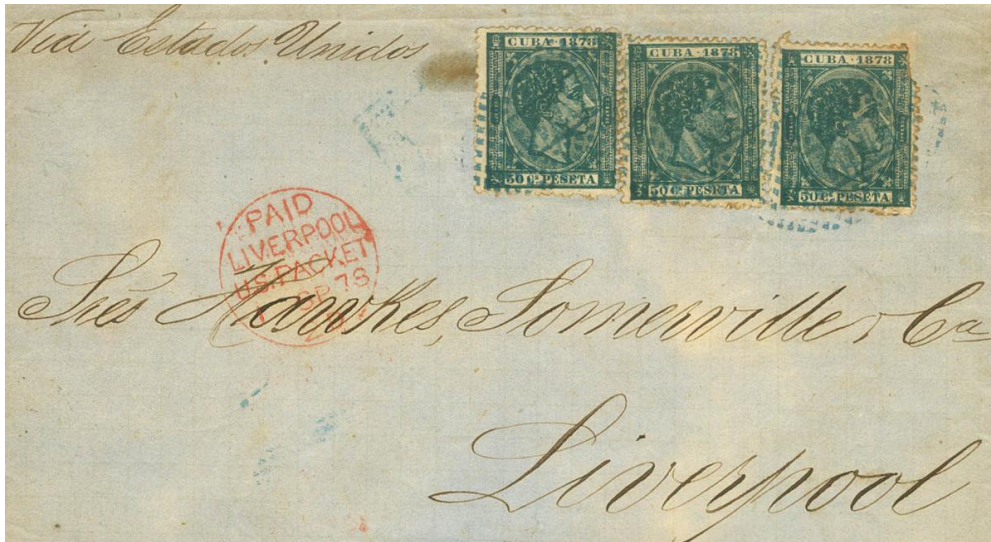 Via Estados Unidos
CUBA · 1878
50 Cs PESETA
CUBA · 1878
50 Cs PESETA
CUBA · 1878
50 Cs PESETA
PAID
LIVERPOOL
U.S. PACKET
78
Sres Hawkes, Somerville & Ca
Liverpool